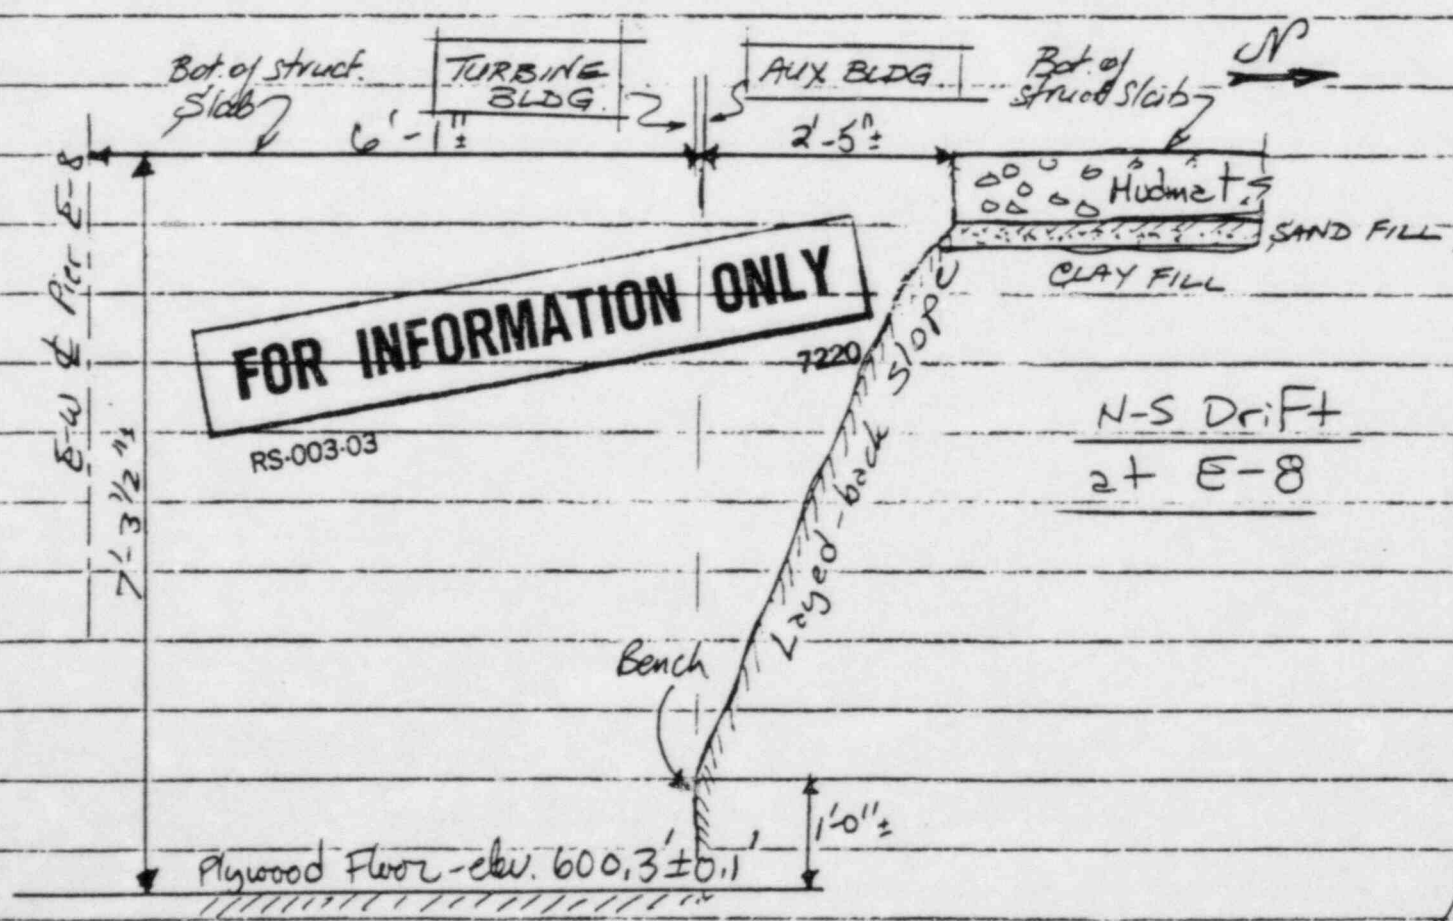 Bot. of struct.
Slab
TURBINE
BLDG.
AUX BLDG.
Bot. of
struct Slab
N
6'-1"±
2'-5"±
Mudmat
SAND FILL
CLAY FILL
E-W ℄ Pier E-8
7'-3 1/2"±
FOR INFORMATION ONLY
7220
RS-003-03
Layed-back Slope
N-S Drift
at E-8
Bench
1'-0"±
Plywood Floor-elev. 600.3'±0.1'